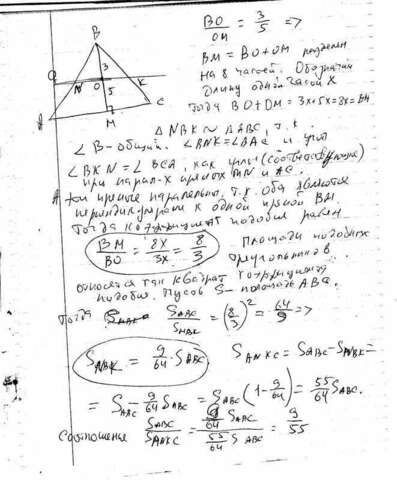 B
3
O
N O K
5
A M C
BO/OM = 3/5 =>
BM = BO+OM разделен
на 8 частей. Обозначим
длину одной части X
Тогда BO+OM = 3x+5x=8x=BM.
△NBK ∾ △ABC, т.к.
∠B-общий. ∠BNK=∠BAC и угол
∠BKN = ∠BCA, как углы (соответствующие)
при парал-х прямых MN и AC.
А эти прямые параллельны, т.к. оба являются
перпендикулярами к одной прямой BM
Тогда коэффициент подобия равен
BM/BO = 8x/3x = 8/3 Площади подобных
треугольников
относятся как квадрат коэффициента
подобия. Пусть S - площадь ABC.
Тогда S_ABC/S_NBK = (8/3)² = 64/9 =>
S_NBK = 9/64 · S_ABC. S_ANKC = S_ABC - S_NBK =
= S_ABC - 9/64 S_ABC = S_ABC (1 - 9/64) = 55/64 S_ABC.
Соотношение S_ABC/S_ANKC = 9/64 S_ABC / 55/64 S_ABC = 9/55